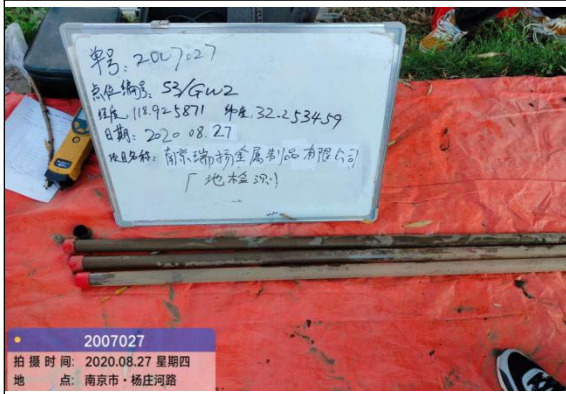 单号: 2007027
点位编号: S3/GW2
经度: 118.925871 纬度: 32.253459
日期: 2020.08.27
项目名称: 南京瑞扬金属制品有限公司
厂地检测
2007027
拍摄时间: 2020.08.27 星期四
地点: 南京市·杨庄河路